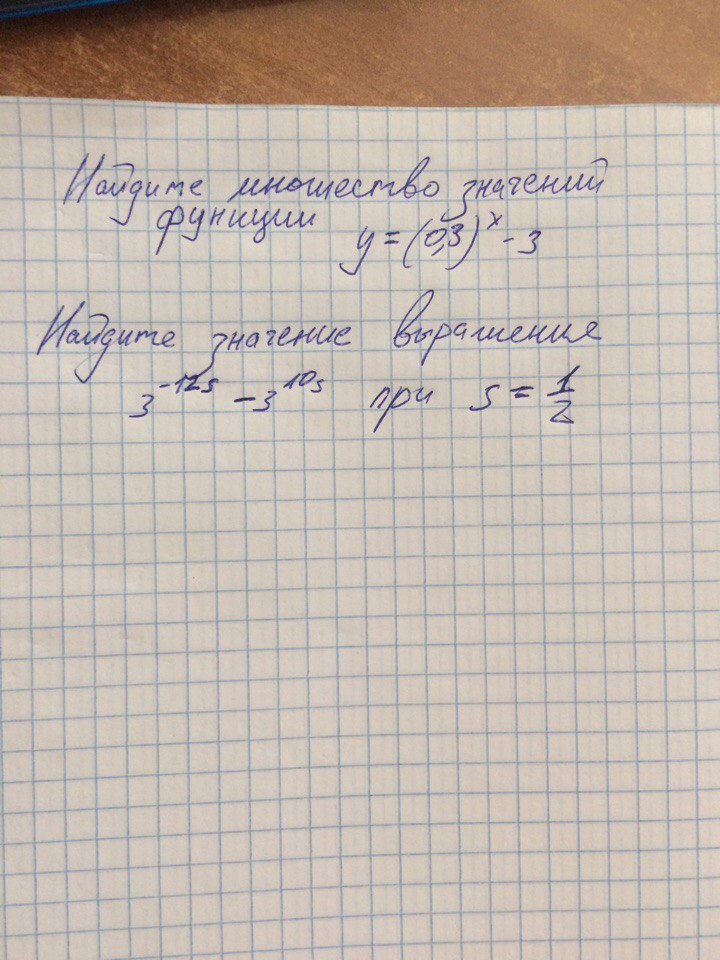 Найдите множество значений
функции y = (0,3)^x - 3
Найдите значение выражения
3^{-12s} - 3^{10s} при s = 1/2